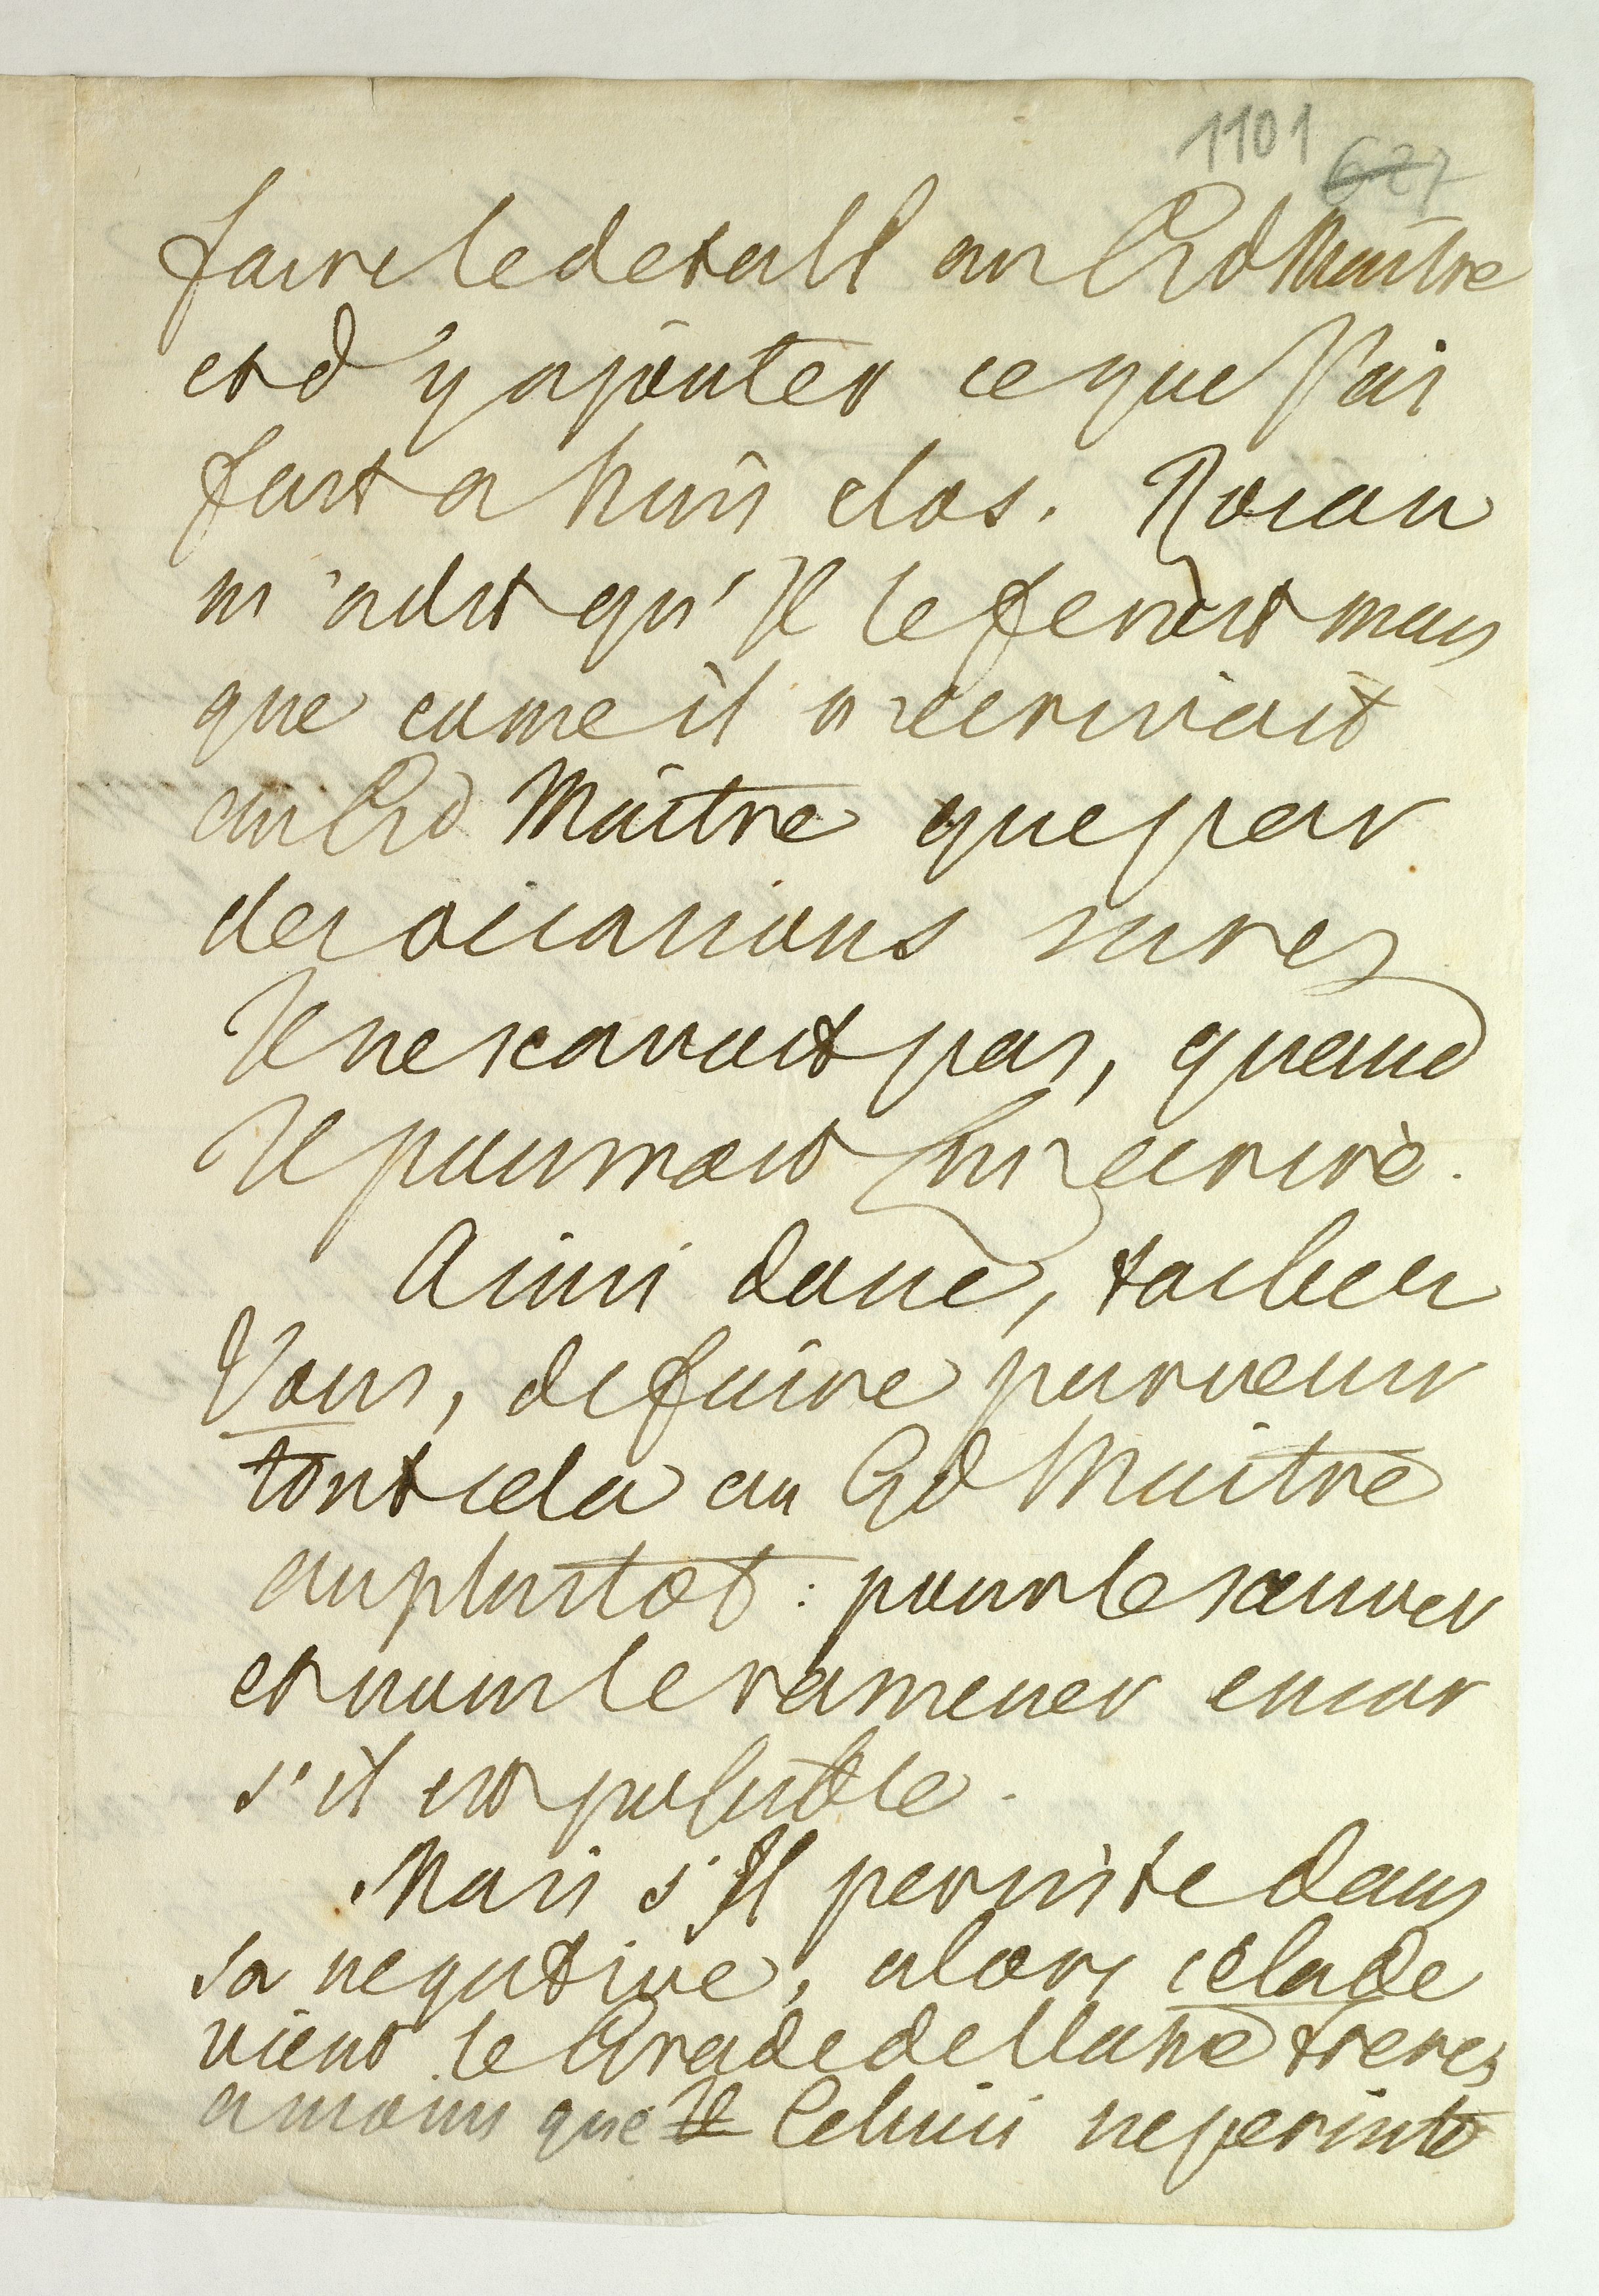 1101 627
faire le detail au Grd Maitre
et d'y ajouter ce que J'ai
fait a huis clos. Rocau
m'a dit qu'Il le feroit mais
que come il n'ecrivait
au Grd Maitre que par
des occasions sures
Il ne scavait pas, quand
Il pourroit Lui ecrire.
Ainsi donc, tachez
Vous, de faire parvenir
tout cela au Grd Maitre
au plustot : pour le sauver
et nous le ramener encor
s'il est possible.
Mais s'Il persiste dans
sa negative, alors cela de
vient le Grade de Notre freres
a moins que Il Celuici ne persiste